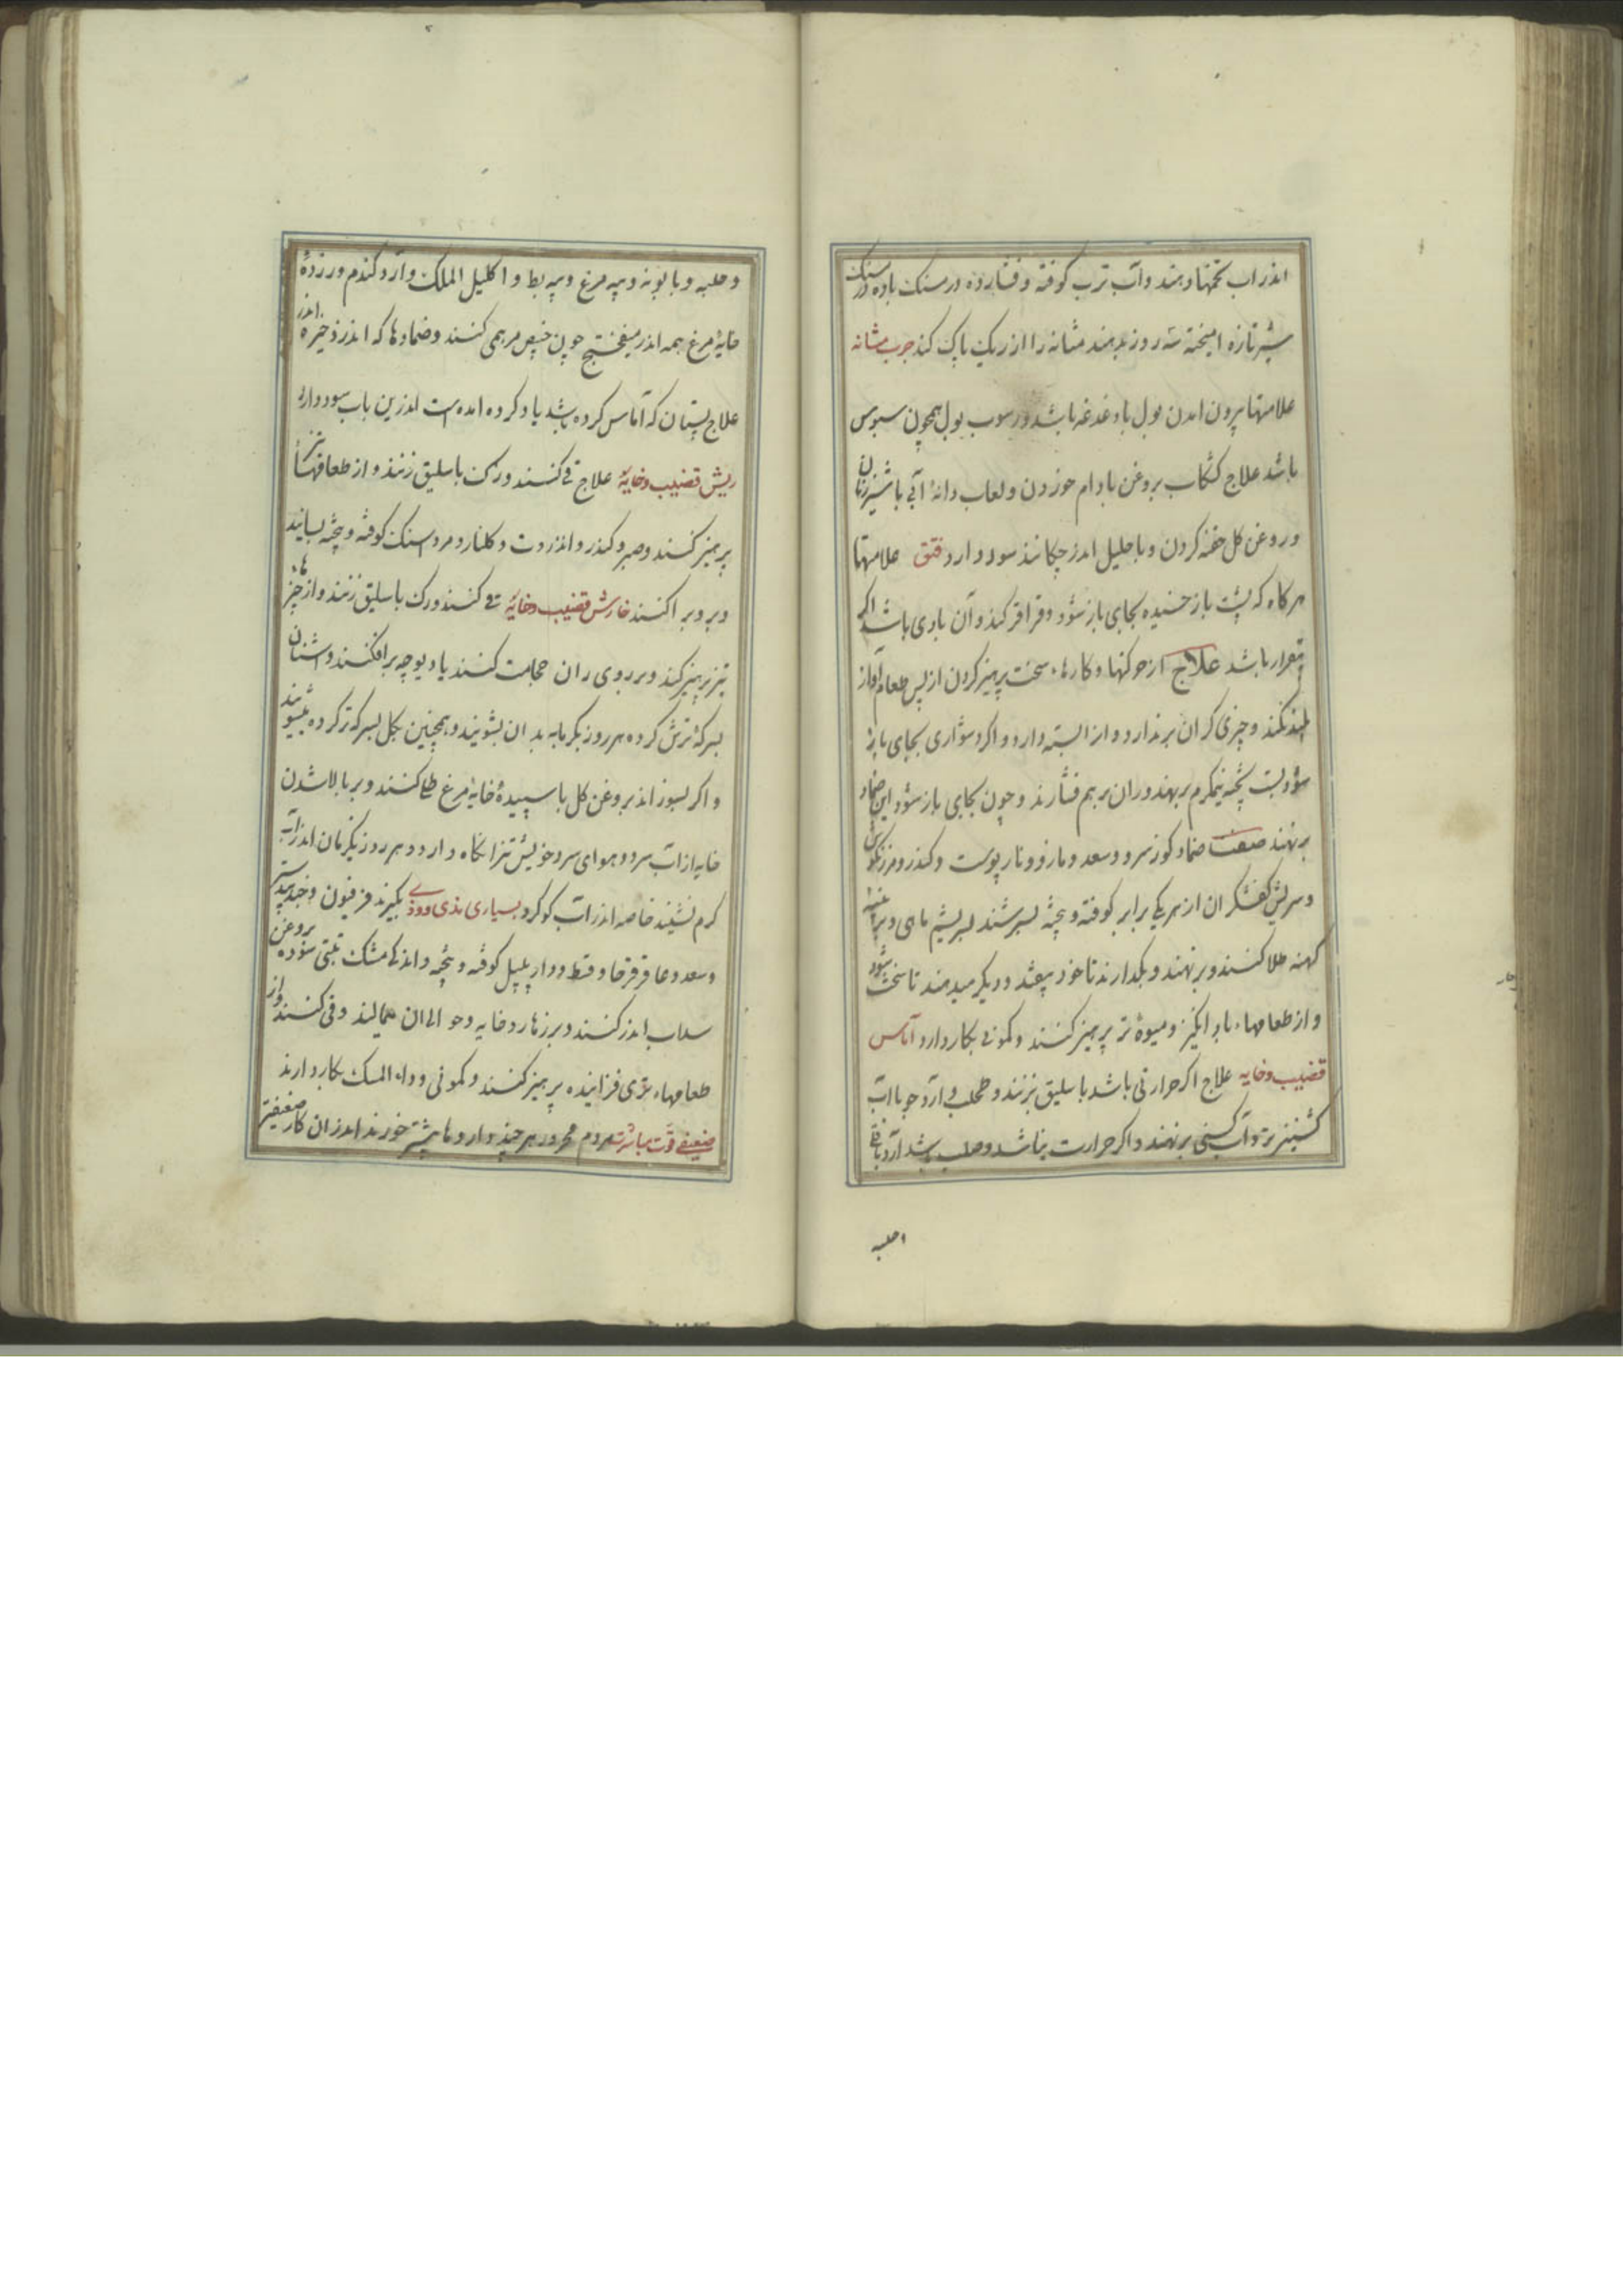 اندر اب تخمها دهند و آب ترب کوفته و فشارده درمسنک باده درمسنک
شیر تازه امیخته سه روز بدهند مثانه را از ریک پاک کند جرب مثانه
علامتها بیرون امدن بول با دغدغه باشد و رسوب بول همچون سبوس
باشد علاج کشکاب بروغن بادام خوردن و لعاب دانهٔ آبی با شیر زنان
و روغن کل حقنه کردن و باحلیل اندر چکانند سود دارد فتق علامتها
هرکاه که بپشت باز خسبد بجای باز شود و قراقر کند و آن بادی باشد اکر
باشد علاج از حرکتها و کارهاء سخت پرهیز کردن از پس طعام آواز
بلند نکند و چیزی کران برندارد و ان را بسته دارد و اکر دشواری بجای باز
شود پخته نیمکرم برنهند و ران برهم فشارند و چون بجای باز شود این ضماد
برنهند صفت ضماد کوز سرو و سعد و مازو و نارپوست و کندر و مرزنکوش
و سریش کفشکران از هر یکی برابر کوفته و بیخته بسرشند بسریشم ماهی و بر
کهنه طلا کنند و برنهند و بکذارند تا خود بیفتد و دیکر میدهند تا سخت شود
و از طعامهاء باد انکیز و میوهٔ تر پرهیز کنند و کمونی بکار دارد آماس
قضیب و خایه علاج اکر حرارتی باشد باسلیق بزنند و طحلب و آرد جو با آب
کشنیز تر و آب کسنی برنهند و اکر حرارت نباشد و صلب باشد آرد باقلی
و حلبه
و حلبه و بابونه و پیه مرغ و پیه بط و اکلیل الملک و آرد کندم و زردهٔ
خایهٔ مرغ همه اندر میفختج چون خبیص مرهمی کنند و ضمادها که اندر ذخیره اندر
علاج پستان که آماس کرده باشد یاد کرده امده است اندرین باب سود دارد
ریش قضیب و خایهٔ علاج قی کنند و رک باسلیق زنند و از طعامهاء تیز
پرهیز کنند و صبر و کندر و انزروت و کلنار و مردسنک کوفته و بیخته بسایند
و بر وی پراکنند خارش قضیب و خایهٔ قی کنند و رک باسلیق زنند و از چیزهاء
تیز پرهیز کند و بر روی ران حجامت کنند یا دیوچه برافکنند و اشنان
بسرکهٔ ترش کرده هر روز بکرمابه بدان بشویند و همچنین بکل بسرکه تر کرده بشویند
و اکر بسوزاند بروغن کل با سپیدهٔ خایهٔ مرغ طلا کنند و بر بالا شدن
خایه از آب سرد و هوای سرد خویشتن را نکاه دارد و هر روز یکزمان اندر آب
کرم نشیند خاصه اندر آب کوکرد بسیاری مذی و وذی بکیرند فرفیون و جندبیدستر
و سعد و عاقرقرحا و قسط و دارپلپل کوفته و بیخته و اندکی مشک تبتی سوده بروغن
سداب اندر کنند و بر زهار و خایه و حوالی ان همی مالند و قی کنند و از
طعامهاء تری فزاینده پرهیز کنند و کمونی و دواء المسک بکار دارند
ضعیفی قوت مباشرت مردم محرور هر چند داروها بیشتر خورند اندران کار ضعیفتر